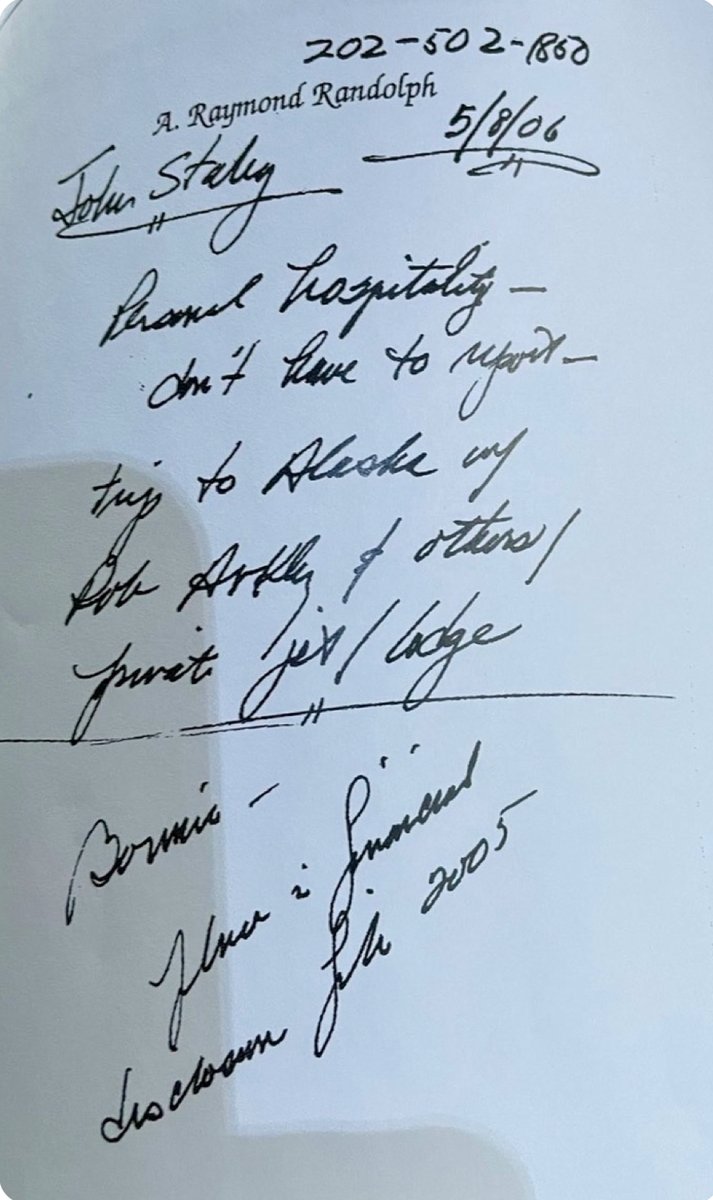 202-502-1850
A. Raymond Randolph
5/8/06
John Staley
Personal hospitality –
don't have to report –
trip to Alaska w/
Rob Arkley & others/
private jet/lodge
Bonnie –
place in financial
disclosure file 2005